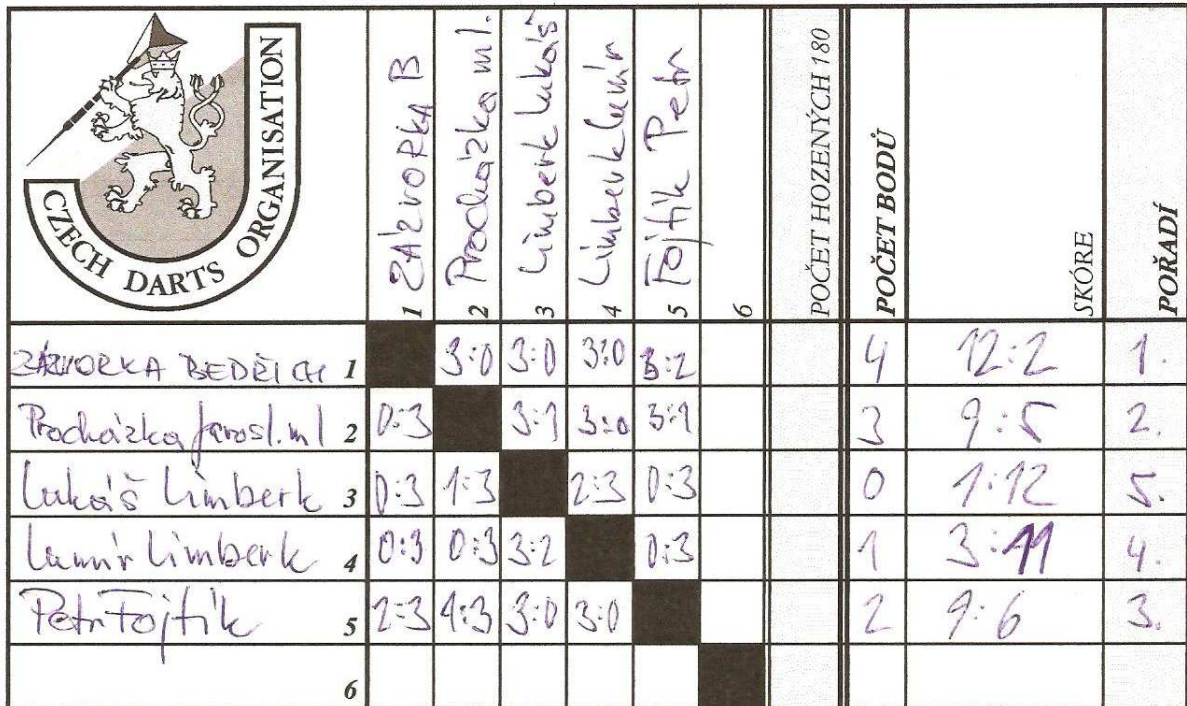 CZECH DARTS ORGANISATION
1 ZÁVORKA B
2 Procházka ml.
3 Limberk Lukáš
4 Limberk Lumír
5 Fojtík Petr
6
POČET HOZENÝCH 180
POČET BODŮ
SKÓRE
POŘADÍ
ZÁVORKA BEDŘICH 1 3:0 3:0 3:0 3:2 4 12:2 1.
Procházka Jarosl. ml 2 0:3 3:1 3:0 3:1 3 9:5 2.
Lukáš Limberk 3 0:3 1:3 2:3 0:3 0 1:12 5.
Lumír Limberk 4 0:3 0:3 3:2 0:3 1 3:11 4.
Petr Fojtík 5 2:3 1:3 3:0 3:0 2 9:6 3.
6